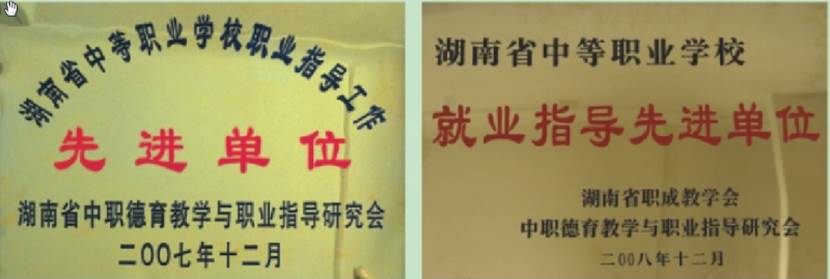 湖南省中等职业学校职业指导工作
先进单位
湖南省中职德育教学与职业指导研究会
二〇〇七年十二月
湖南省中等职业学校
就业指导先进单位
湖南省职成教学会
中职德育教学与职业指导研究会
二〇〇八年十二月